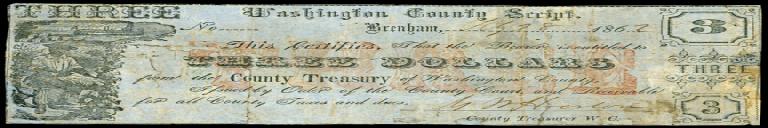 THREE
Washington County Script.
3
No
Brenham, 1862
This Certifies, That the Bearer is entitled to
THREE DOLLARS
THREE
from the County Treasury of Washington County.
Issued by Order of the County Court, and Receivable
for all County Taxes and dues.
3
County Treasurer W. C.